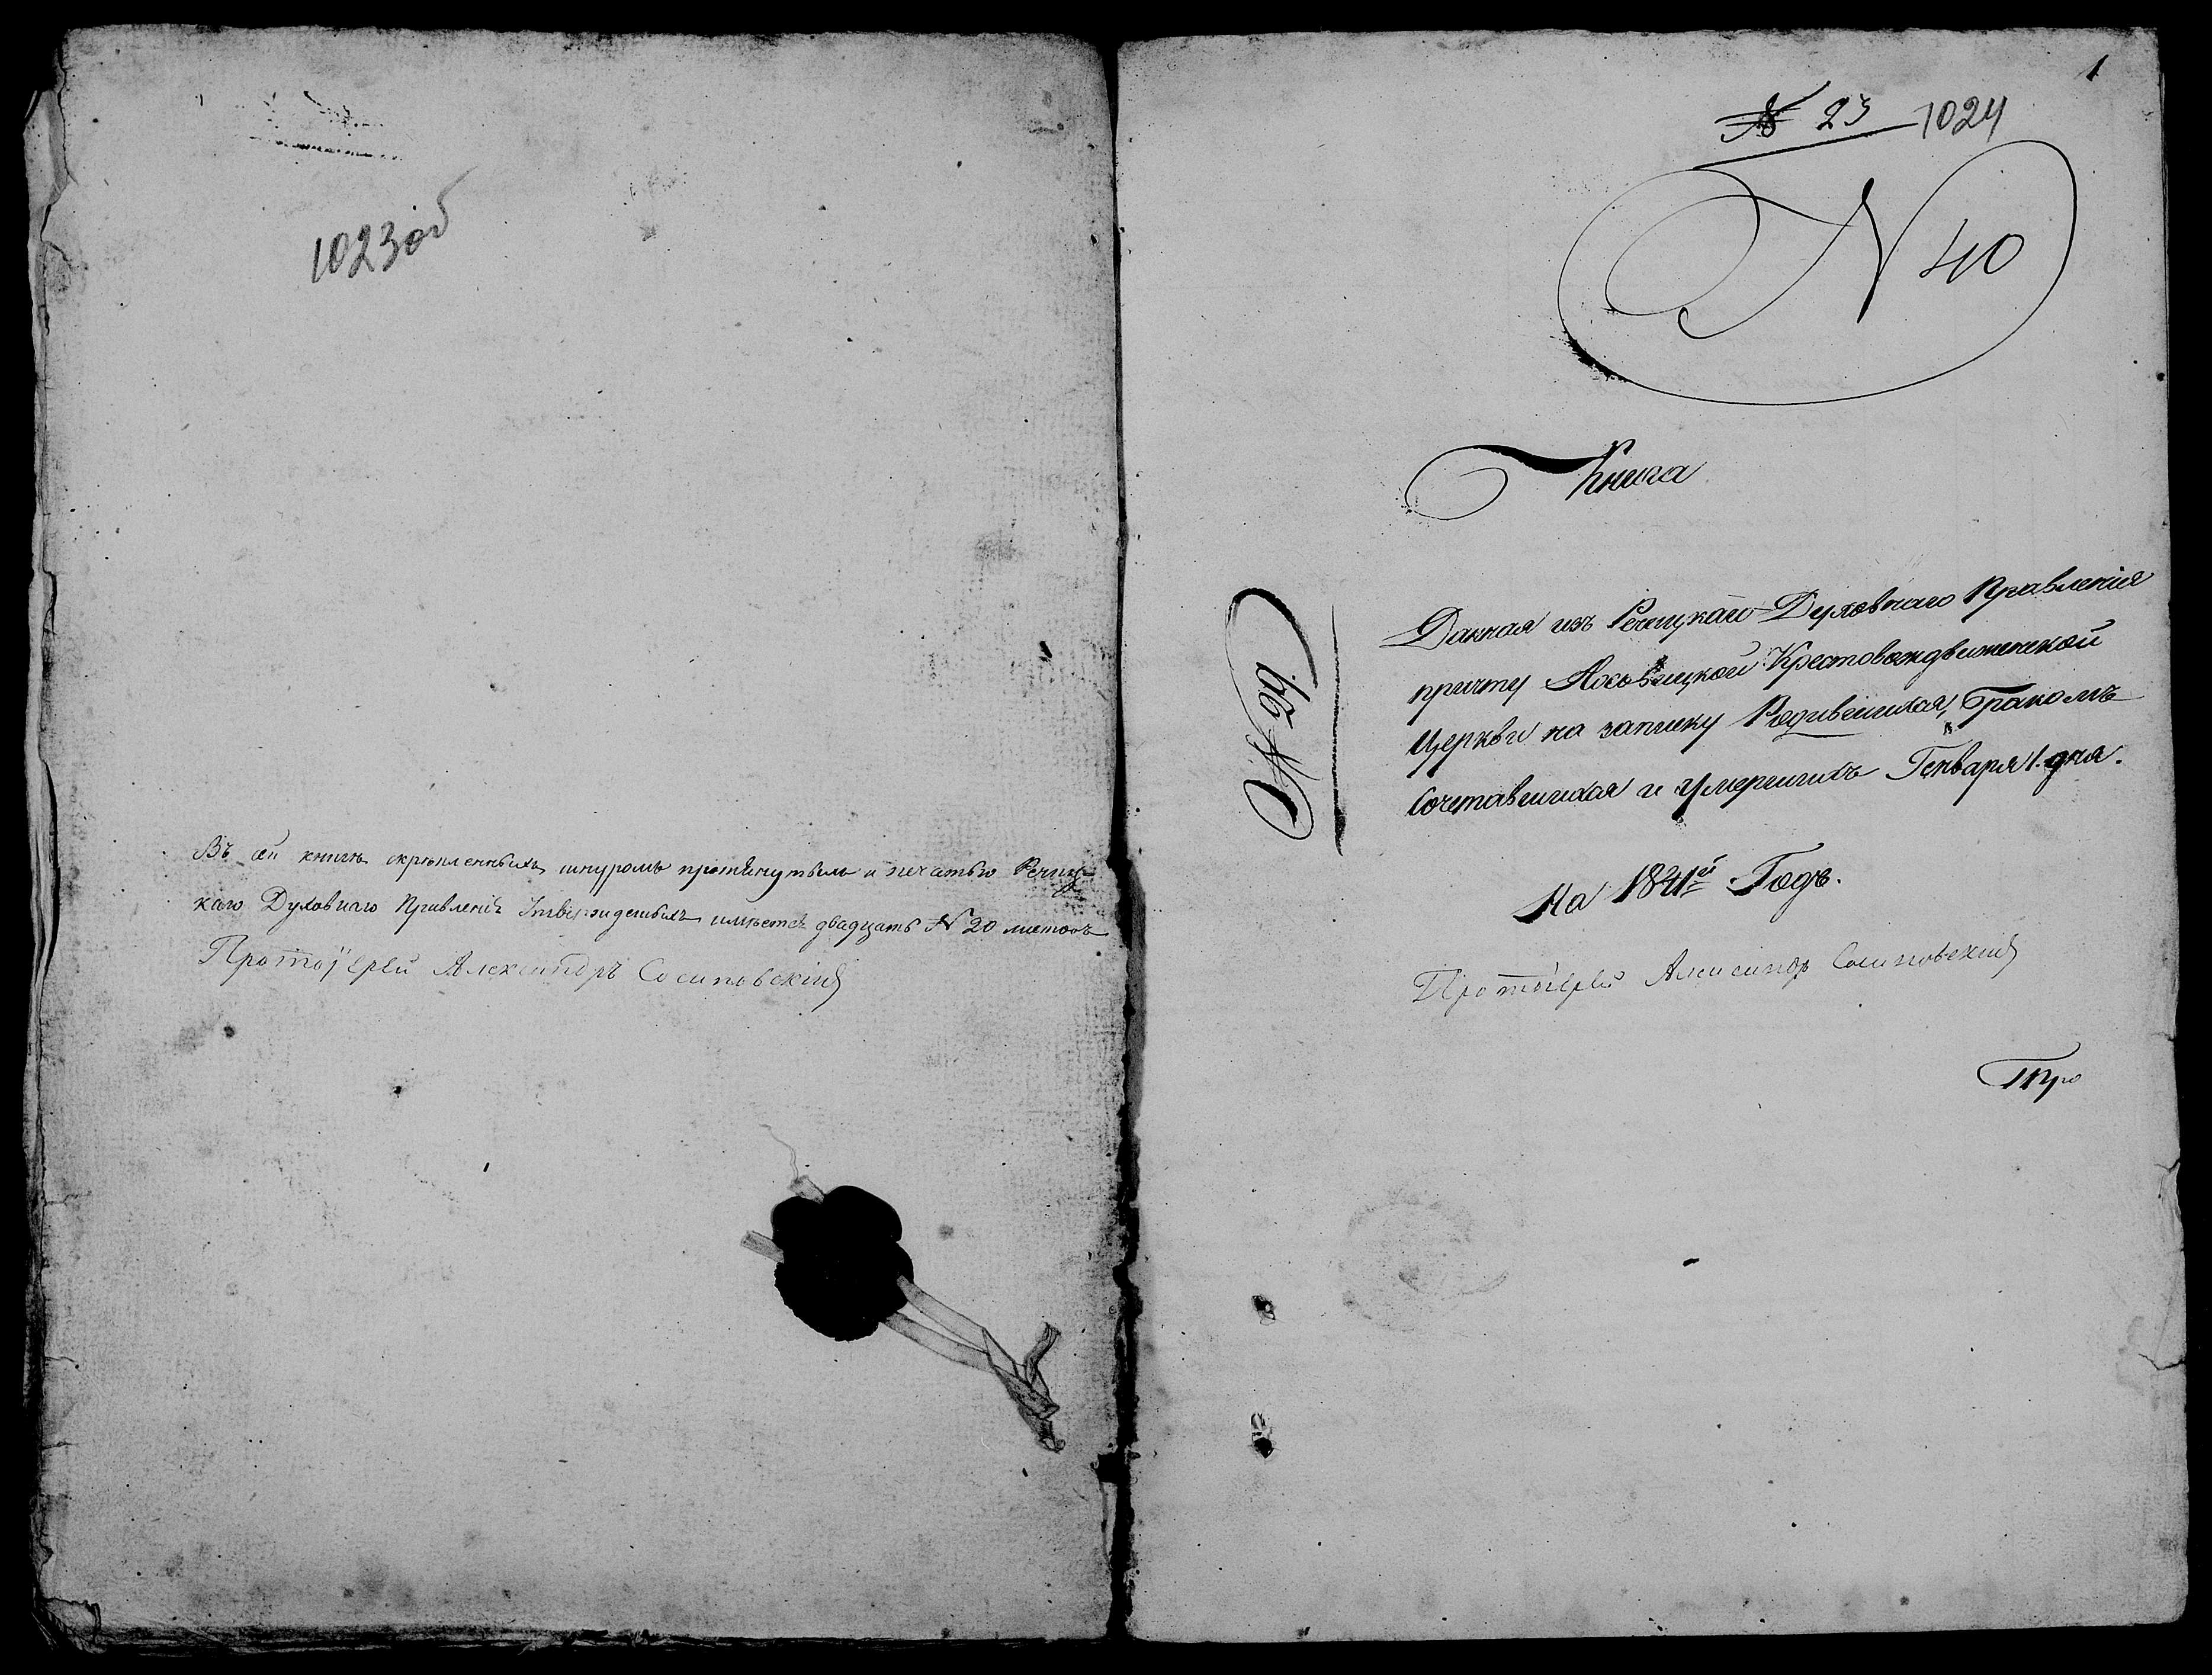 1023об
Въ сей книгѣ скрѣпленныхъ шнуромъ протянутымъ и печатью Речиц-
каго Духовнаго Правленія имѣется двадцать № 20 листовъ
Протоіерей Александръ Сосиновскій
1
№ 23 1024
N 40
Книга
Данная изъ Речицкаго Духовнаго Правленія
причту Крестовоздвиженской
Церкви на записку Родившихся, Бракомъ
Сочетавшихся и Умершихъ Генваря 1. дня.
На 1841й Годъ.
Протоіерей Александръ Сосиновскій
Про